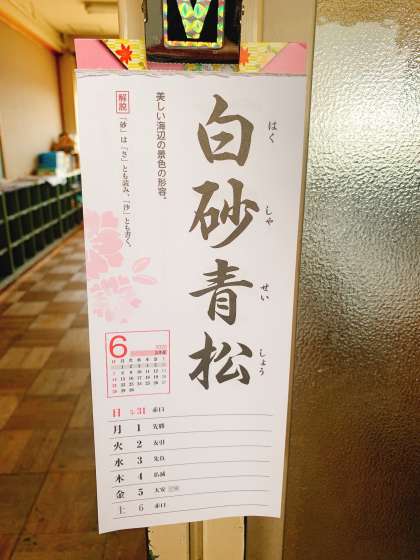 白砂青松
はく
しゃ
せい
しょう
美しい海辺の景色の形容。
解説 「砂」は「さ」とも読み、「沙」とも書く。
6
2020
日 5/31 赤口
月 1 先勝
火 2 友引
水 3 先負
木 4 仏滅
金 5 大安
土 6 赤口